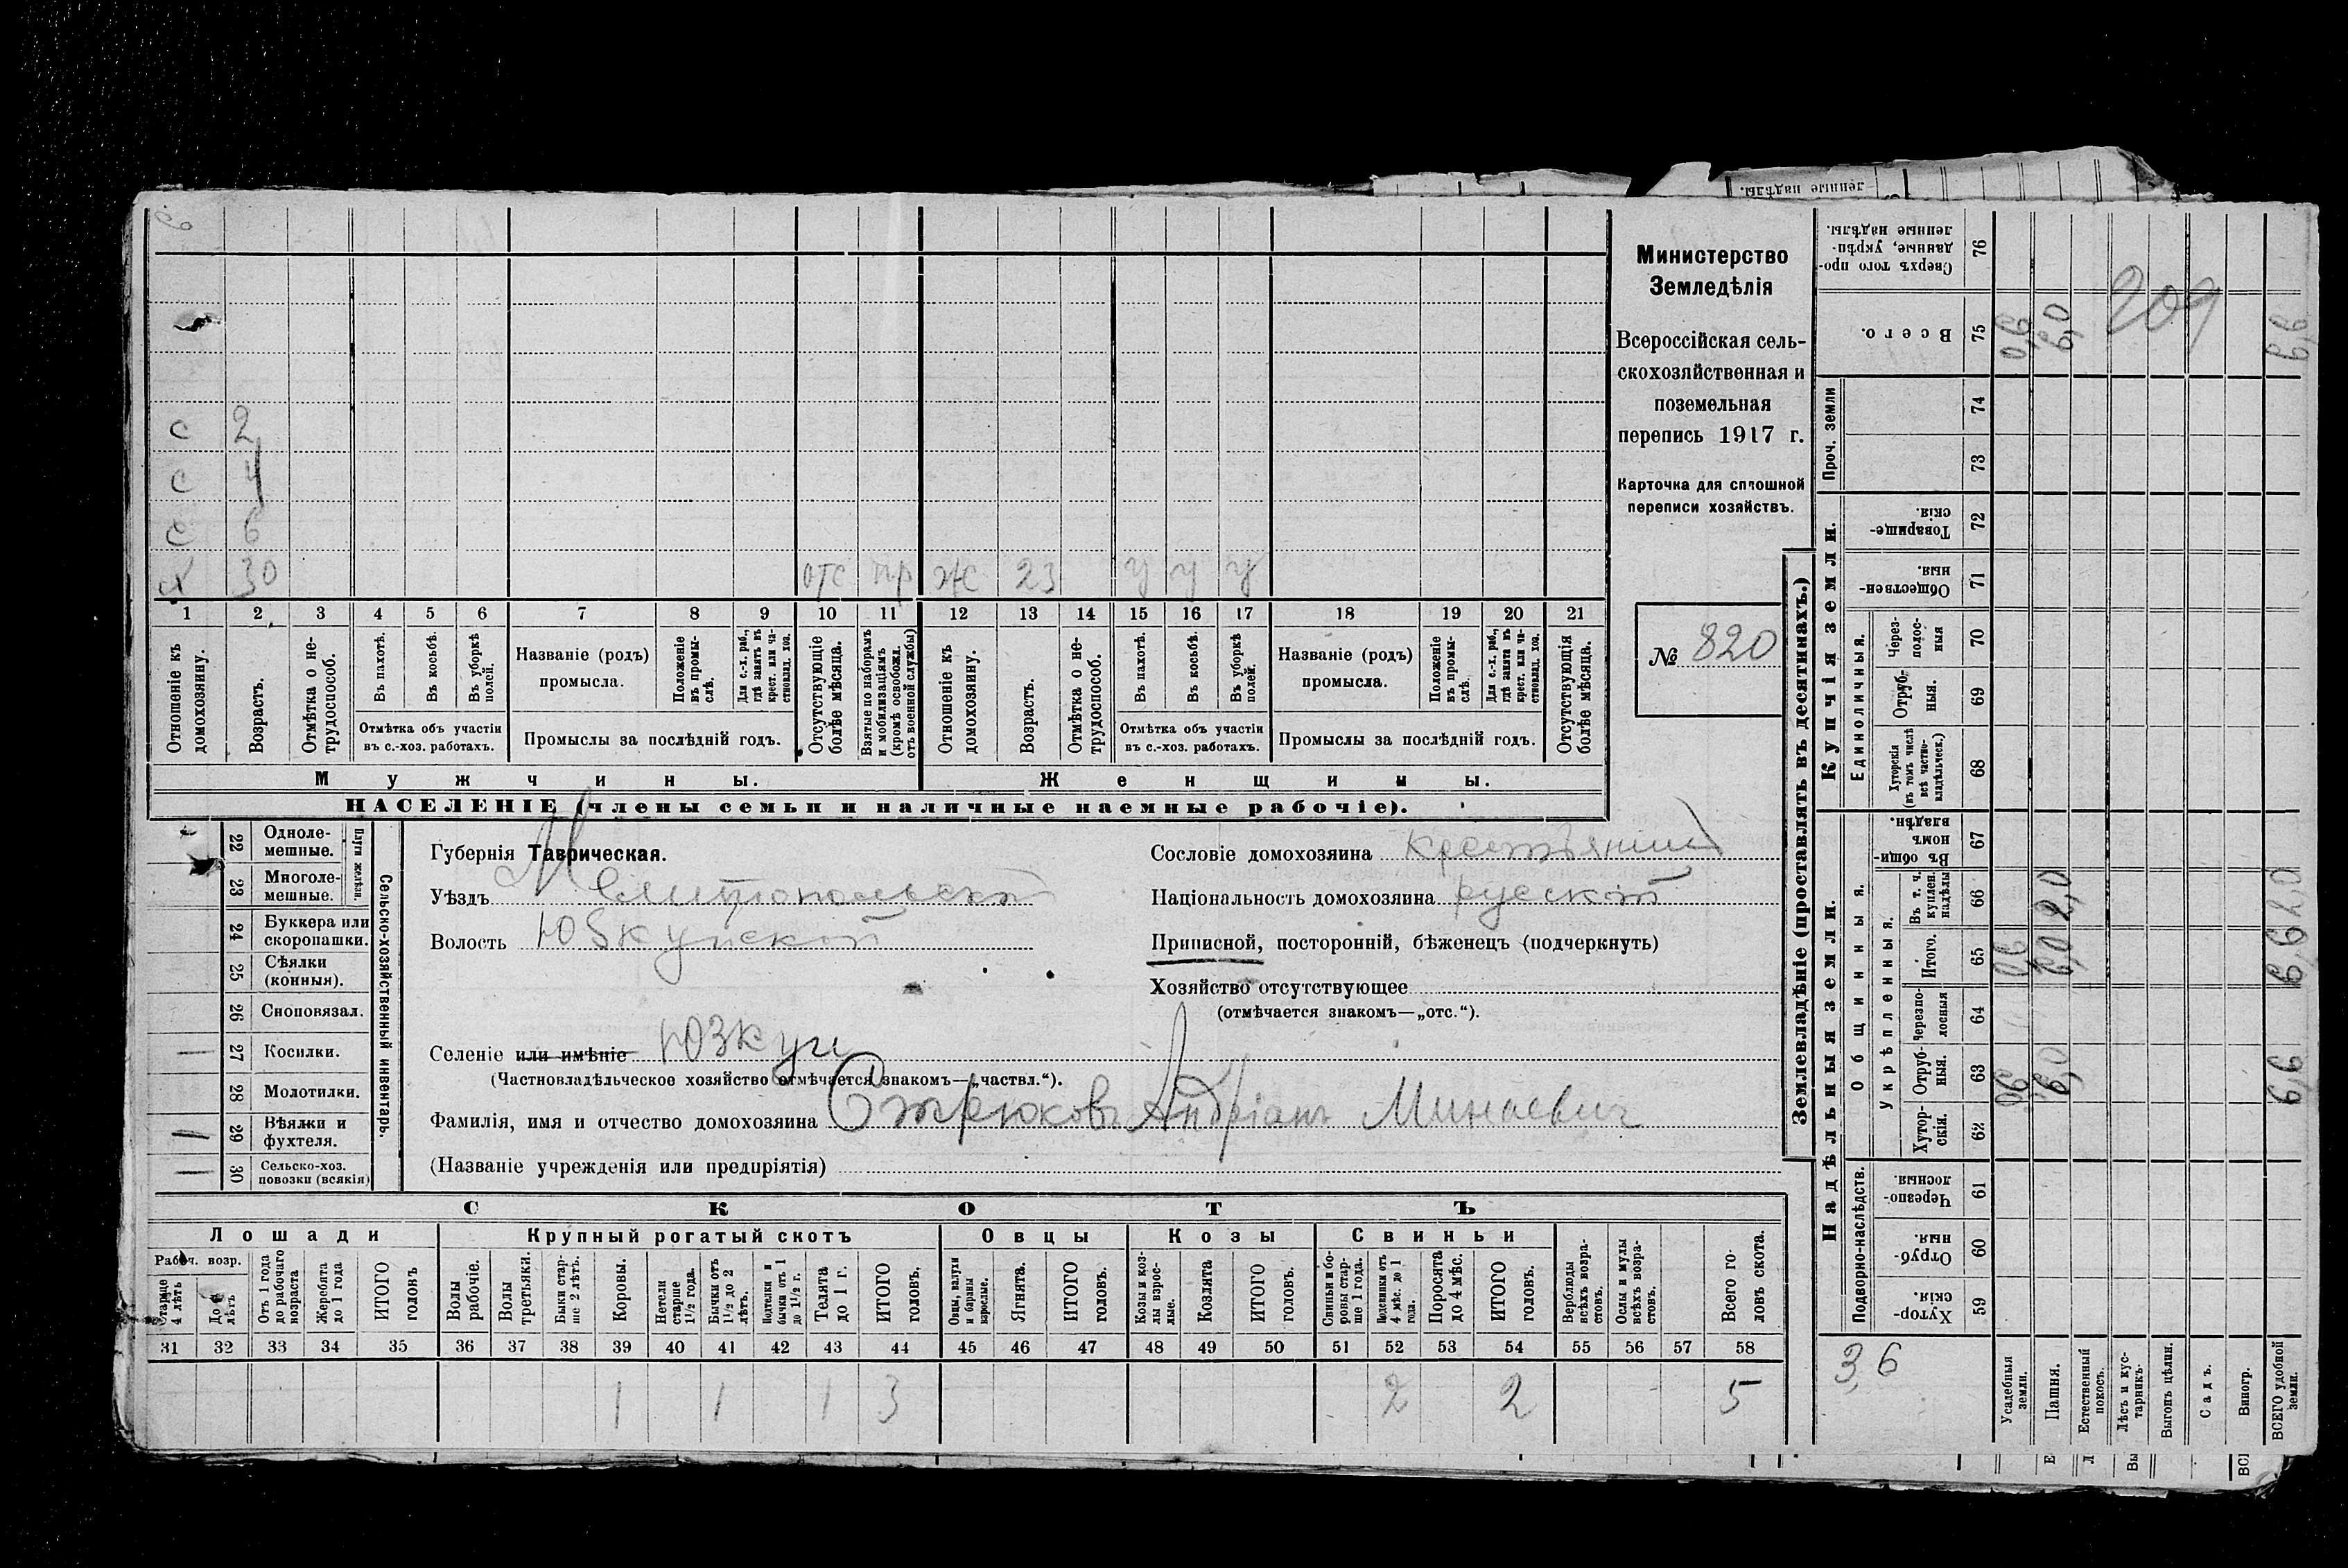 Министерство
Земледѣлія
Всероссійская сель-
скохозяйственная и
поземельная
перепись 1917 г.
Карточка для сплошной
переписи хозяйствъ.
№ 820
с 2
с 4
с 6
х 30 отс пр ж 23 у у у
1 2 3 4 5 6 7 8 9 10 11 12 13 14 15 16 17 18 19 20 21
Отношеніе къ домохозяину.
Возрастъ.
Отмѣтка о не-трудоспособ.
Въ пахотѣ.
Въ косьбѣ.
Въ уборкѣ полей.
Отмѣтка объ участіи въ с.-хоз. работахъ.
Названіе (родъ) промысла.
Положеніе въ промы-слѣ.
Для с.-х. раб., гдѣ занятъ въ крест. или ча-ствовлад. хоз.
Промыслы за послѣдній годъ.
Отсутствующіе болѣе мѣсяца.
Взятые по наборамъ и мобилизаціямъ (кромѣ освобожд. отъ военной службы)
Отношеніе къ домохозяину.
Возрастъ.
Отмѣтка о не-трудоспособ.
Въ пахотѣ.
Въ косьбѣ.
Въ уборкѣ полей.
Отмѣтка объ участіи въ с.-хоз. работахъ.
Названіе (родъ) промысла.
Положеніе въ промы-слѣ.
Для с.-х. раб., гдѣ занята въ крест. или ча-ствовлад. хоз.
Промыслы за послѣдній годъ.
Отсутствующія болѣе мѣсяца.
Мужчины. Женщины.
НАСЕЛЕНІЕ (члены семьи и наличные наемные рабочіе).
Сельско-хозяйственный инвентарь.
Плуги желѣзн.
22 Одноле-мешные.
23 Многоле-мешные.
24 Буккера или скоропашки.
25 Сѣялки (конныя).
26 Сноповязал.
27 Косилки. |
28 Молотилки.
29 Вѣялки и фухтеля. |
30 Сельско-хоз. повозки (всякія) |
Губернія Таврическая.
Уѣздъ Мелитопольскій
Волость Юзкуйской
Селеніе или имѣніе Юзкуи
(Частновладѣльческое хозяйство отмѣчается знакомъ—„частвл.“).
Фамилія, имя и отчество домохозяина Стрюковъ Андріанъ Минаевич
(Названіе учрежденія или предпріятія)
Сословіе домохозяина крестьянин
Національность домохозяина русскій
Приписной, посторонній, бѣженецъ (подчеркнуть)
Хозяйство отсутствующее
(отмѣчается знакомъ—„отс.“).
СКОТЪ
Лошади Крупный рогатый скотъ Овцы Козы Свиньи
Рабоч. возр.
Старше 4 лѣтъ
До 4 лѣтъ
Отъ 1 года до рабочаго возраста
Жеребята до 1 года
ИТОГО головъ
Волы рабочіе.
Волы третьяки.
Быки стар-ше 2 лѣтъ.
Коровы.
Нетели старше 1½ года.
Бычки отъ 1½ до 2 лѣтъ.
Подтелки и бычки отъ 1 до 1½ г.
Телята до 1 г.
ИТОГО головъ.
Овцы, валухи и бараны взрослые.
Ягнята.
ИТОГО головъ.
Козы и коз-лы взрос-лые.
Козлята
ИТОГО головъ.
Свиньи и бо-ровы стар-ше 1 года.
Подсвинки отъ 4 мѣс. до 1 года.
Поросята до 4 мѣс.
ИТОГО головъ.
Верблюды всѣхъ возра-стовъ.
Ослы и мулы всѣхъ возра-стовъ.
Всего го-ловъ скота.
31 32 33 34 35 36 37 38 39 40 41 42 43 44 45 46 47 48 49 50 51 52 53 54 55 56 57 58
1 1 1 3 2 2 5
Землевладѣніе (проставлять въ десятинахъ.)
Купчія земли.
Надѣльныя земли.
Сверхъ того про-данные, укрѣп-ленные надѣлы. 76
Всего. 75
Проч. земли 74 73
Товарище-скія. 72
Обществен-ныя. 71
Единоличныя.
Через-полос-ныя 70
Отруб-ныя. 69
Хуторскія (въ томъ числѣ всѣ частно-владѣльческ.) 68
Общинныя.
Въ общин-номъ владѣн. 67
Укрѣпленныя.
Въ т. ч. куплен. надѣлы 66
Итого. 65
Черезпо-лосныя 64
Отруб-ныя. 63
Хутор-скія. 62
Подворно-наслѣдств.
Черезпо-лосныя. 61
Отруб-ныя. 60
Хутор-скія. 59
Усадебныя земли.
Пашня.
Естественный покосъ.
Лѣсъ и кус-тарникъ.
Выгонъ цѣлин.
Садъ.
Виногр.
ВСЕГО удобной земли.
209
3,6
2,0
2,0
ленные надѣлы.